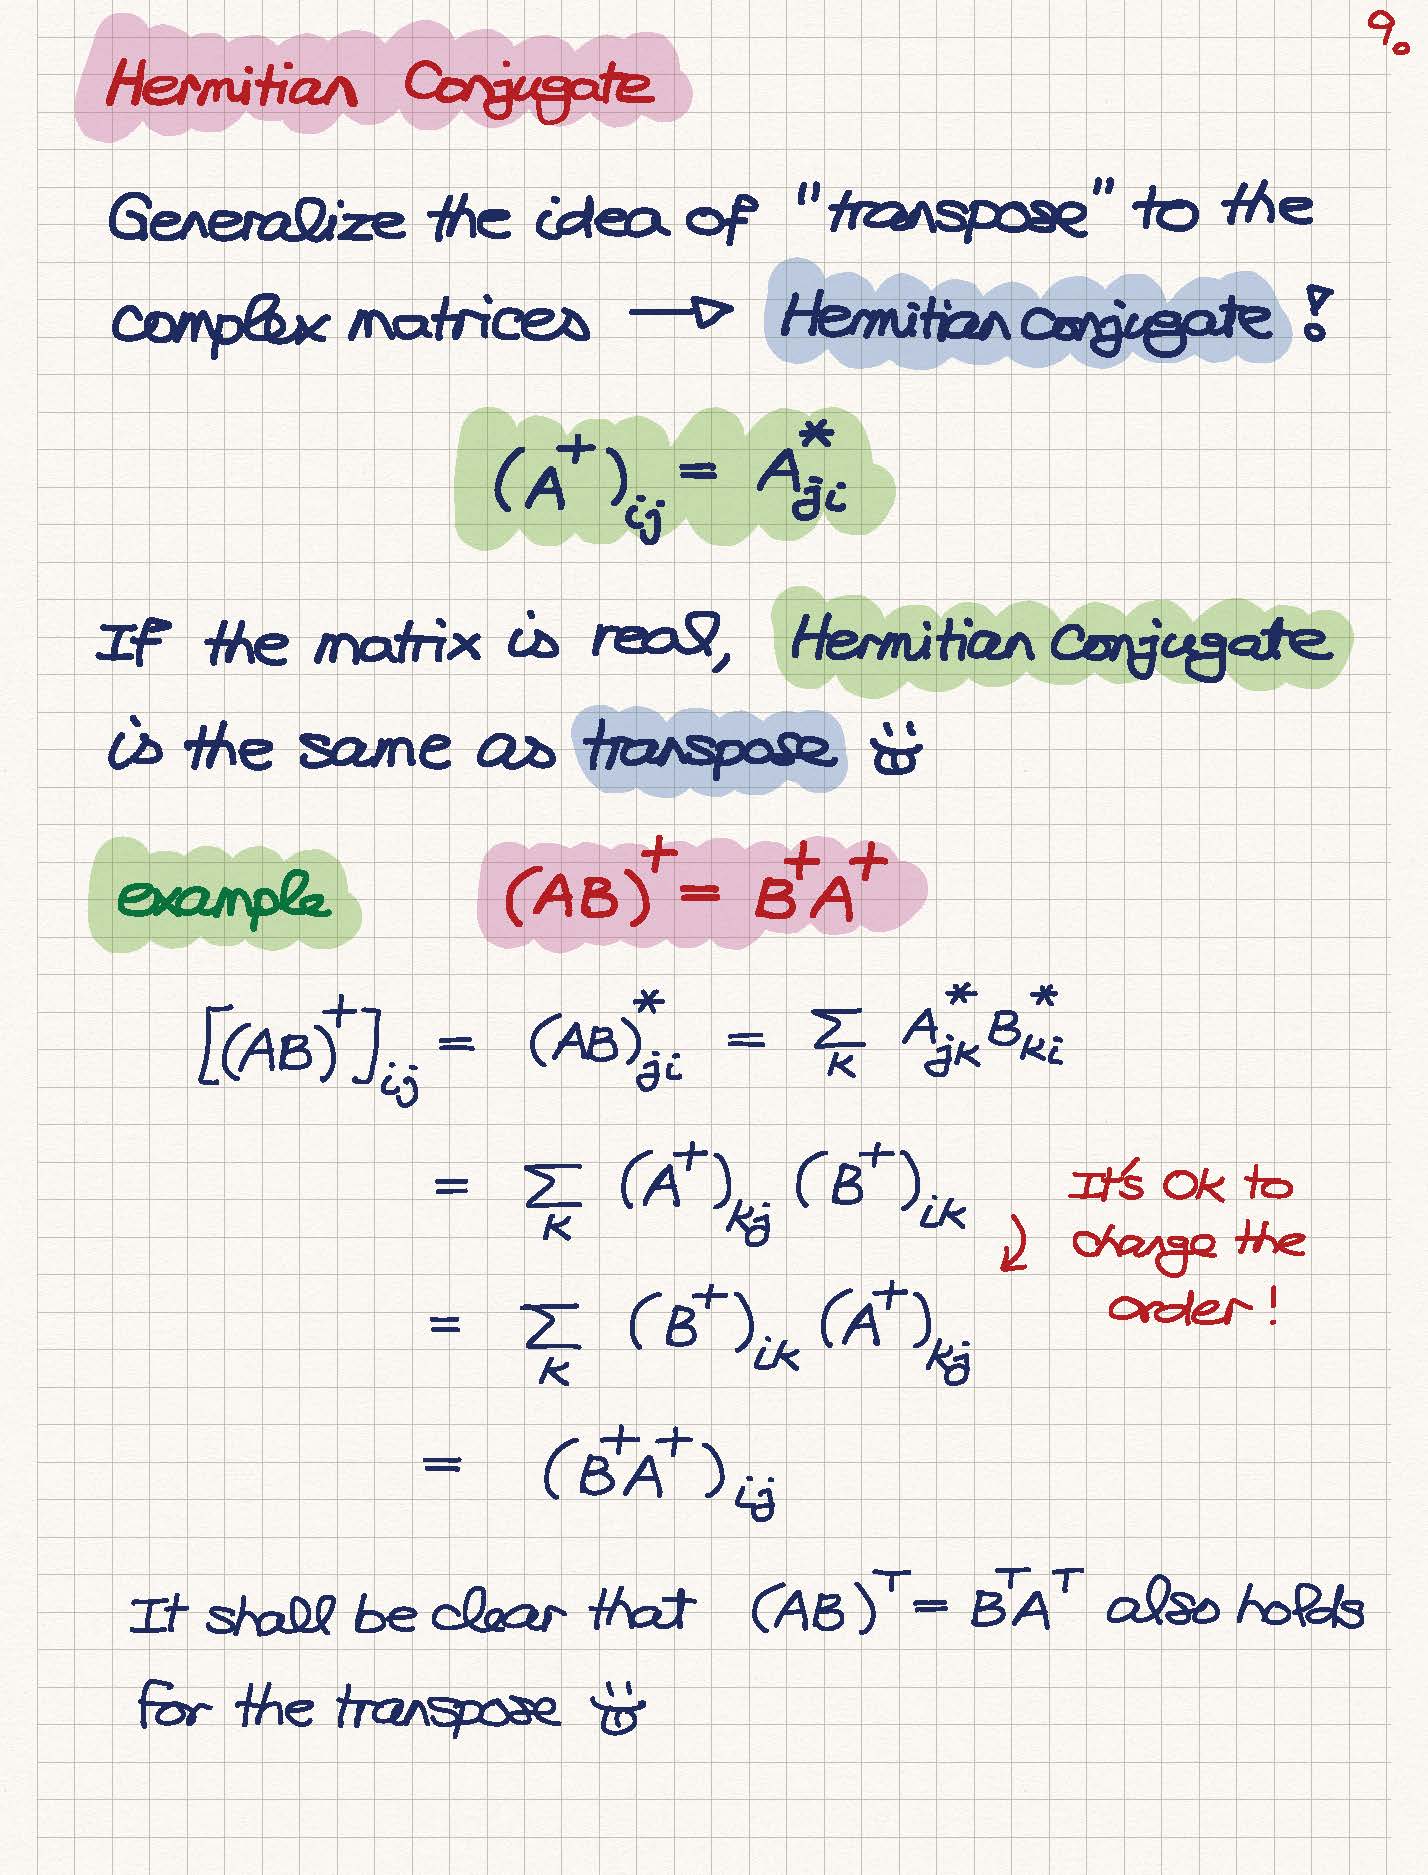 9.
Hermitian Conjugate
Generalize the idea of "transpose" to the
complex matrices → Hermitian Conjugate !
(A⁺)ᵢⱼ = A*ⱼᵢ
If the matrix is real, Hermitian Conjugate
is the same as transpose
example (AB)⁺ = B⁺A⁺
[(AB)⁺]ᵢⱼ = (AB)*ⱼᵢ = Σₖ A*ⱼₖ B*ₖᵢ
= Σₖ (A⁺)ₖⱼ (B⁺)ᵢₖ
It's OK to
change the
order!
= Σₖ (B⁺)ᵢₖ (A⁺)ₖⱼ
= (B⁺A⁺)ᵢⱼ
It shall be clear that (AB)ᵀ = BᵀAᵀ also holds
for the transpose